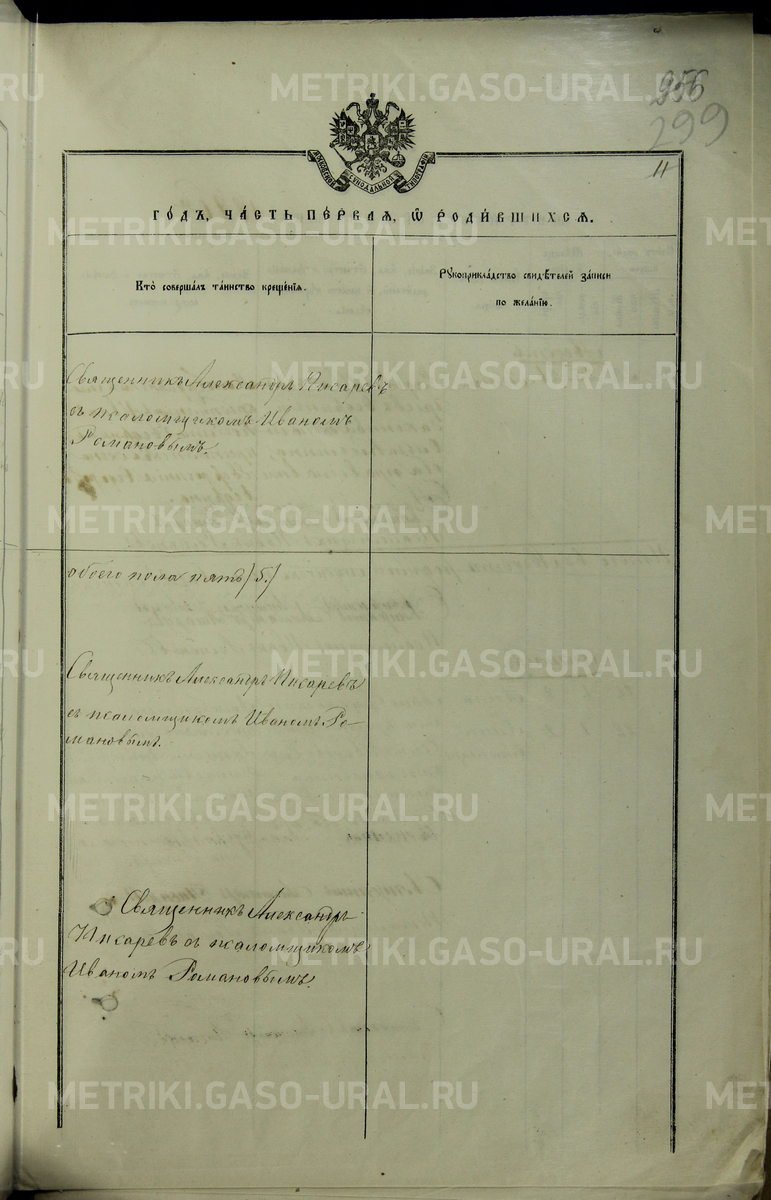 METRIKI.GASO-URAL.RU
956
299
11
МОСКОВСКОЙ СѴНОДАЛЬНОЙ ТИПОГРАФІИ
ГО́ДЪ, ЧА́СТЬ ПЕ́РВАЯ, Ѽ РОДИ́ВШИХСЯ.
Кто̀ соверша́лъ та́инство креще́нїѧ.
Рꙋкоприкла́дство свидѣ́телей за́писи
по жела́нїю.
Священникъ Александръ Писаревъ
съ псаломщикомъ Иваномъ
Романовымъ.
METRIKI.GASO-URAL.RU
обоего пола пять (5.)
Священникъ Александръ Писаревъ
съ псаломщикомъ Иваномъ Ро-
мановымъ.
METRIKI.GASO-URAL.RU
Священникъ Александръ
Писаревъ съ псаломщикомъ
Иваномъ Романовымъ.
METRIKI.GASO-URAL.RU